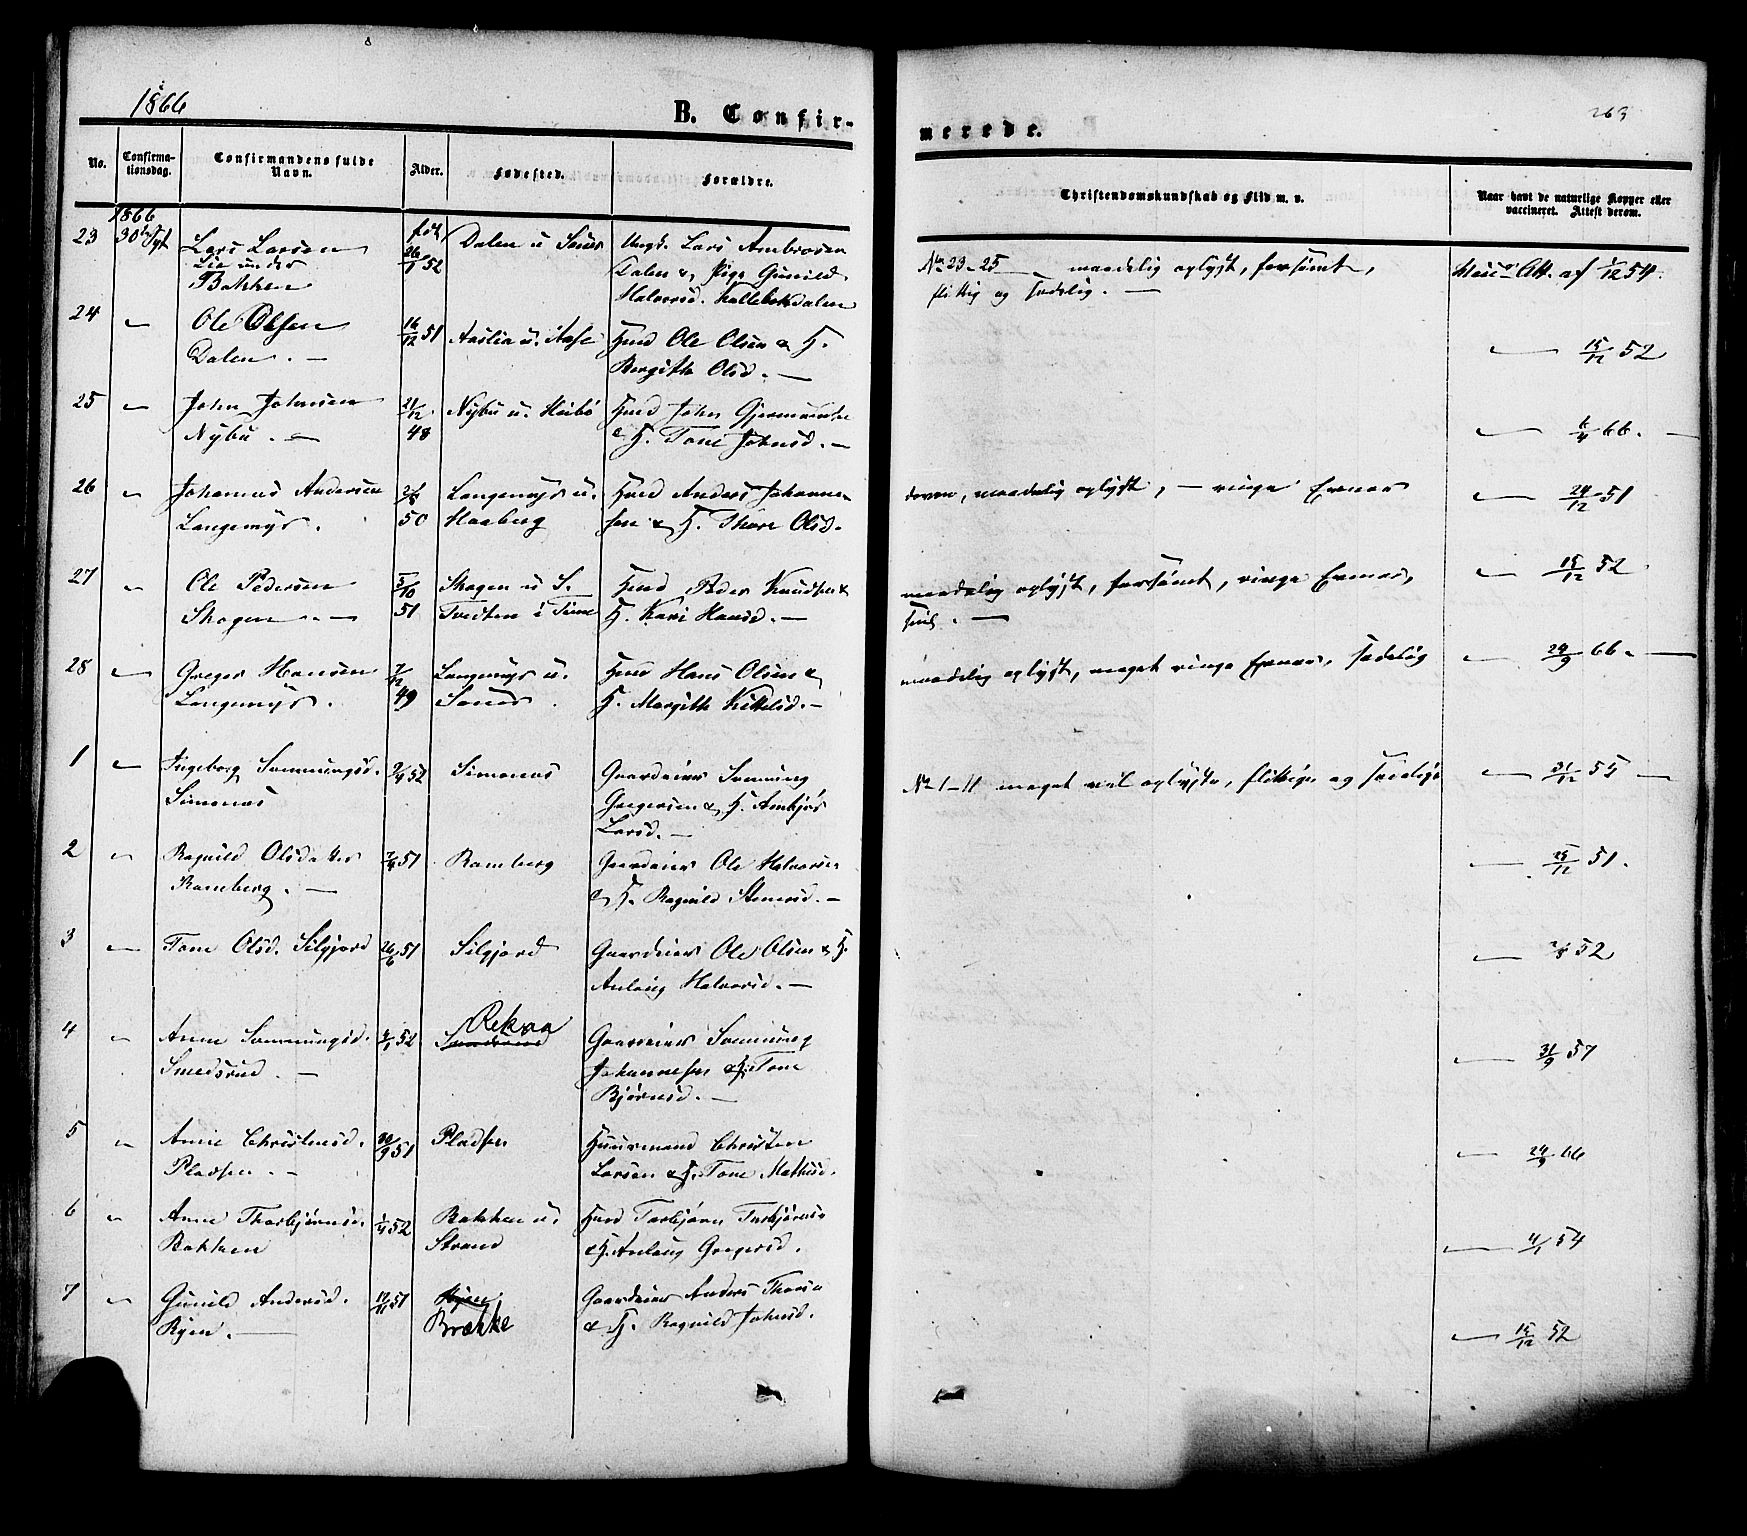 1866
B. Confir-
merede.
263
No.
Confirma-
tionsdag.
Confirmandens fulde
Navn.
Alder.
Fødested.
Forældre.
Christendomskundskab og Flid m. v.
Naar havt de naturlige Kopper eller
vaccineret. Attest derom.
1866
23 30 Lars Larsen
Lie under
Bakken
26/1 52 Dalen u
Ungk. Lars Ambrosen
Dalen & Pige Gunild
Halvorsd.
No 23-25 maadelig oplyst, forsömt,
flittig og sædelig. —
Att. af 1/12 54.
24 " Ole Olsen
Dalen. —
16/12 51 Aaslia u. Aase Husmd Ole Olsen & H.
Bergitte Olsd. —
— 15/12 52
25 " John Johnsen
Nybu. —
21/12
48
Nybu u. Haibö
John Gjermundsen
& H. Tone Johnsd. —
— 6/4 66. —
26 " Johannes Andersen
Langemyr.
50
Langemyr u.
Haaberg
Anders Johanne-
sen & H. Thore Olsd.
maadelig oplyst, — ringe Evner
— 24/12 51
27 " Ole Pedersen
Skogen. —
5/10
51
Skogen u S.
Tvedten i
Peder Knudsen &
H. Kari Hansd. —
maadelig oplyst, forsömt, ringe Evner,
— 15/12 52
28 " Greger Hansen
Langemyr.
7/12
49
Langemyr u.
Hans Olsen &
H. Margith Kittilsd. —
maadelig oplyst, meget ringe Evner, sædelig
— 24/9 66. —
1 " Ingeborg Sønmungsd.
Simones
52 Simones
Gaardeier Sønmung
Gregersen & H. Ambjör
Larsd. —
No 1-11 meget vel oplyste, flittige og sædelige
— 31/12 55 —
2 " Ragnild Olsdatter
Ramberg. —
51 Ramberg
Gaardeier Ole Halvorsen
& H. Ragnild Steensd. —
— 25/12 51.
3 " Tone Olsd. Silgjord
26/6 51 Silgjord
Gaardeier Ole Olsen & H.
Anlaug Halvorsd. —
— 52
4 " Anne Sønmungsd.
Smedsrud. —
52 Rekaa
Gaardeier Sønmung
Johannesen & H. Tone
Björnsd. —
— 31/9 57
5 " Anne Christensd.
Pladsen. —
51 Pladsen
Huusmand Christen
Larsen & H. Tone Mathisd.
— 24/9 66
6 " Anne Thorbjørnsd.
Bakken
1/4 52 Bakken u.
Strand
Torbjörn Torbjörnsen
& H. Anlaug Gregersd.
— 4/1 54
7 " Gunild Andersd.
Ryen. —
51 Ryen
Brække
Gaardeier Anders
& H. Ragnild Johnsd.
— 15/12 52